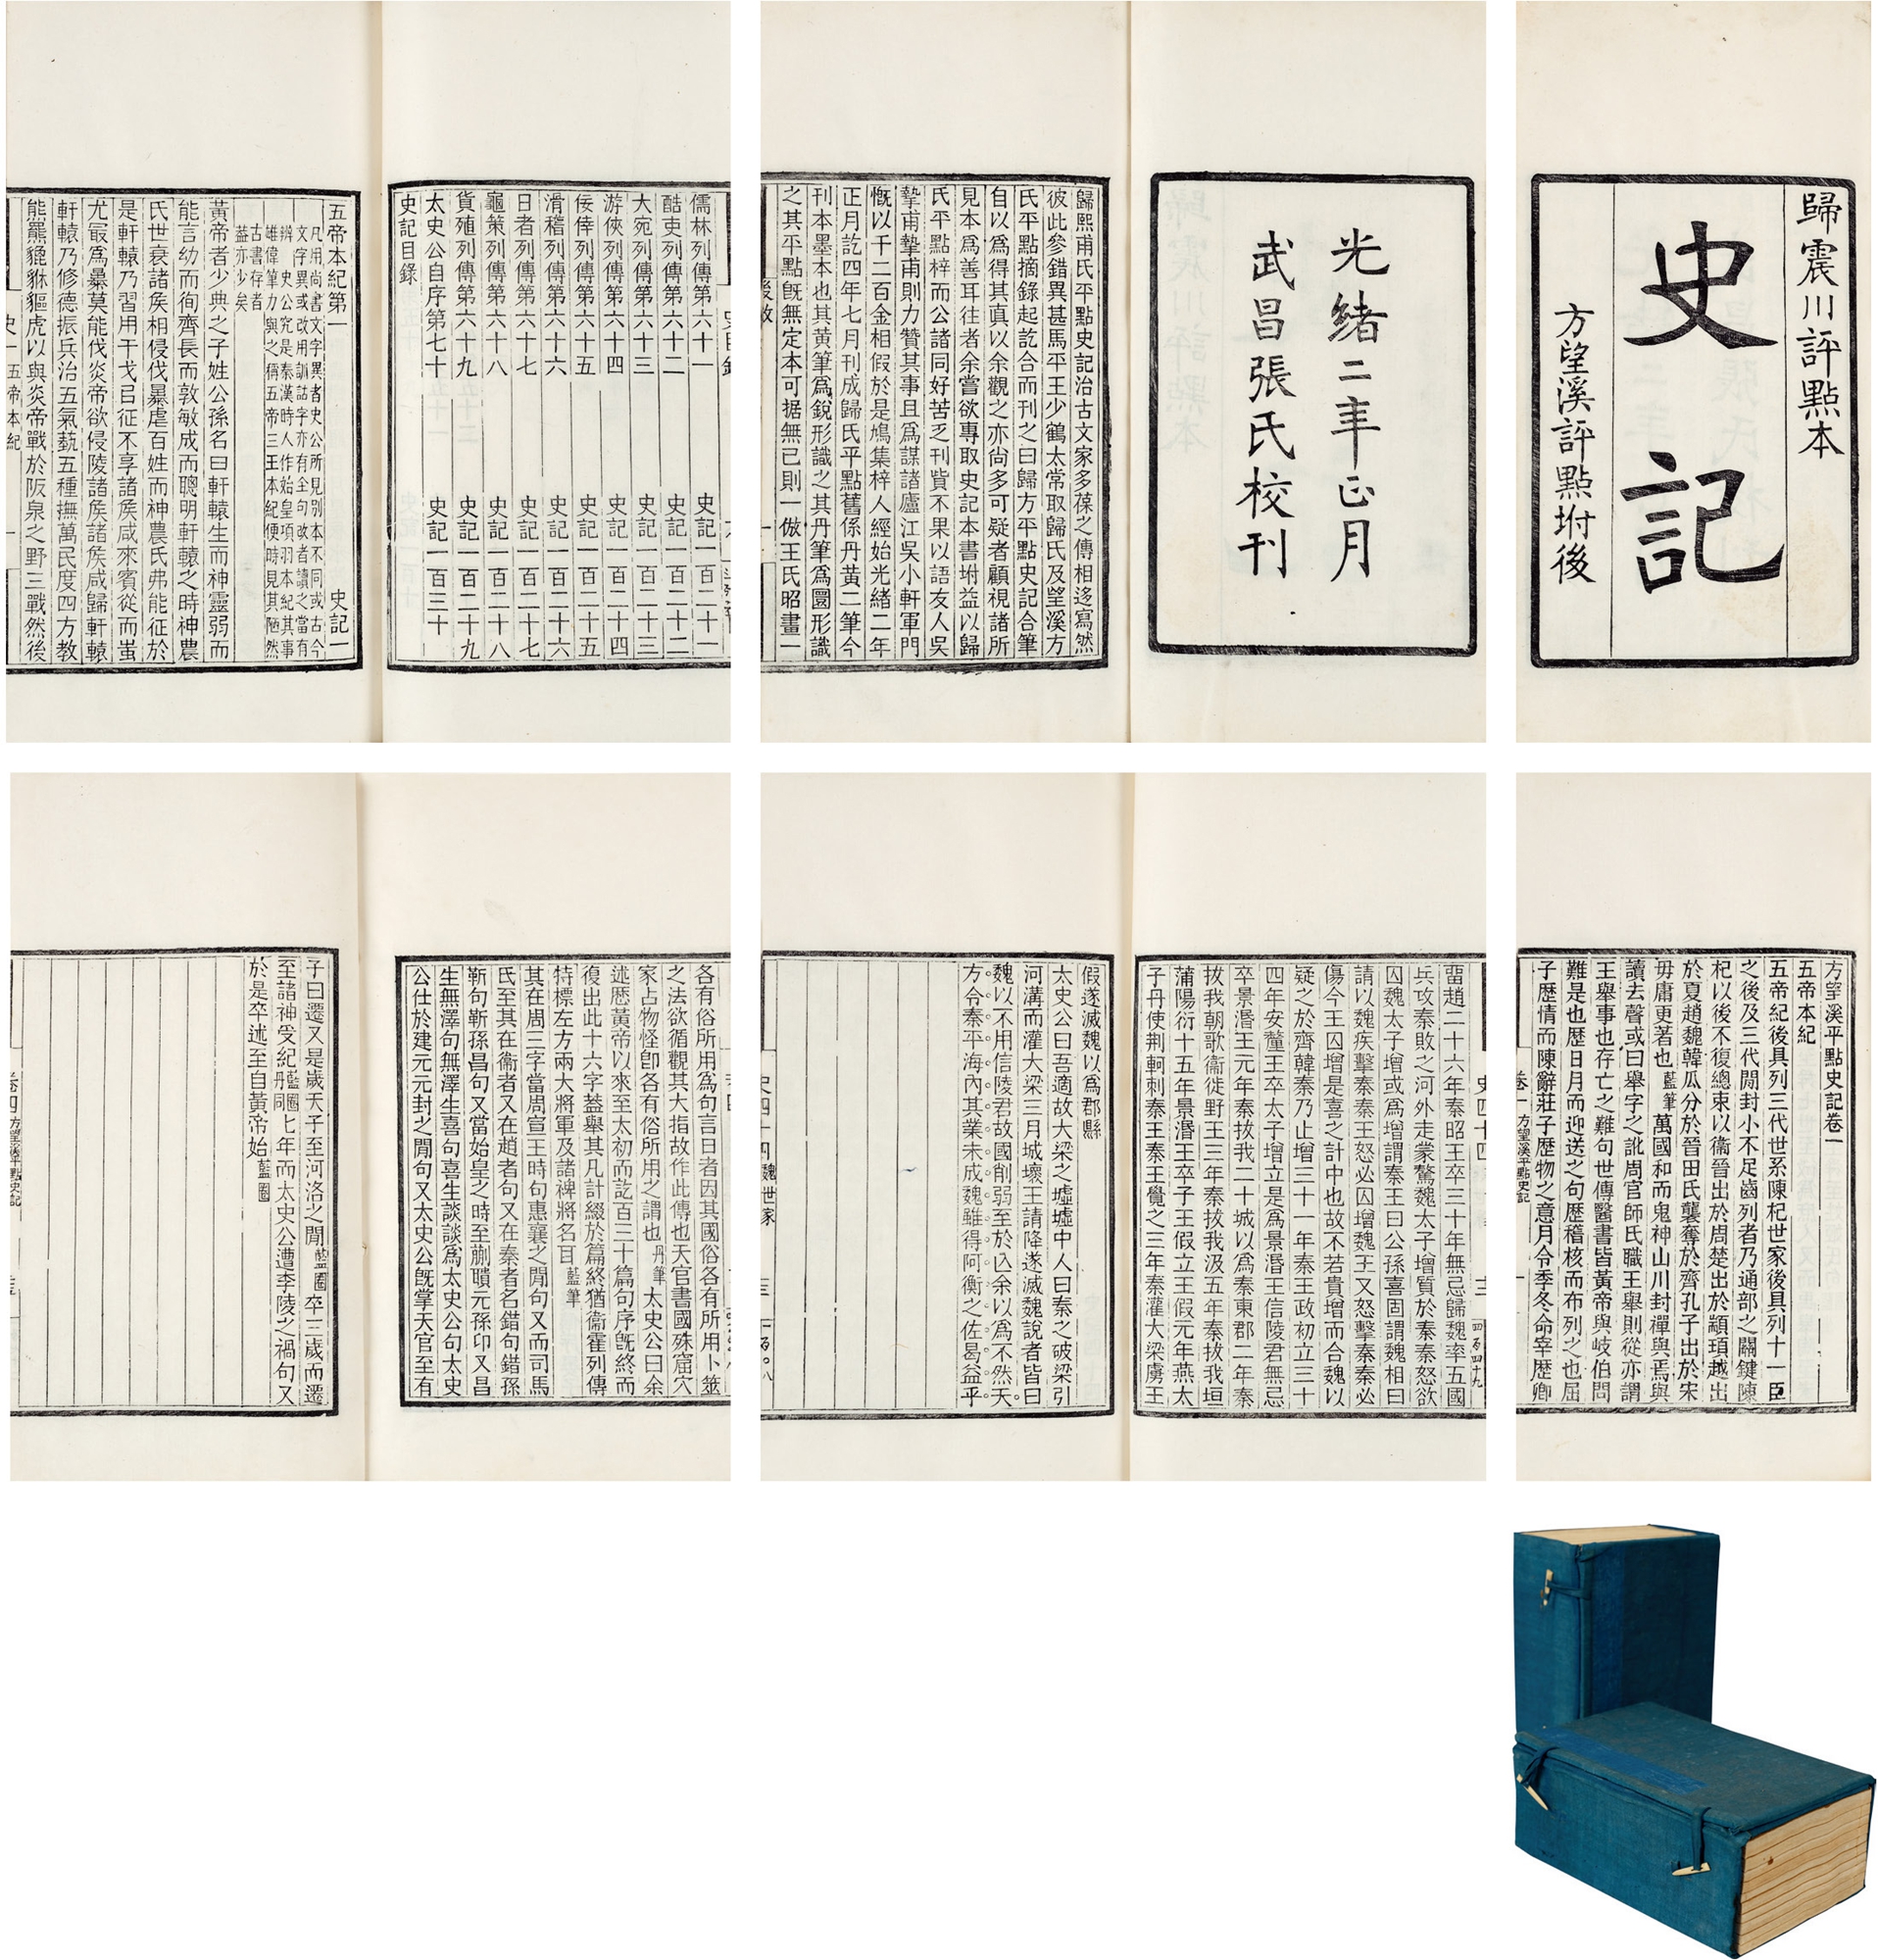 歸震川評點本
史記
方望溪評點坿後
光緒二年正月
武昌張氏校刊
歸熙甫氏平點史記治古文家多葆之傳相迻寫然
彼此參錯異甚馬平王少鶴太常取歸氏及望溪方
氏平點摘錄起訖合而刊之曰歸方平點史記合筆
自以爲得其真以余觀之亦尚多可疑者顧視諸所
見本爲善耳往者余嘗欲專取史記本書坿益以歸
氏平點梓而公諸同好苦乏刊貲不果以語友人吳
摯甫摯甫則力贊其事且爲謀諸廬江吳小軒軍門
慨以千二百金相假於是鳩集梓人經始光緒二年
正月訖四年七月刊成歸氏平點舊係丹黃二筆今
刊本墨本也其黃筆爲銳形識之其丹筆爲圜形識
之其平點旣無定本可据無已則一倣王氏昭畫一
儒林列傳第六十一 史記一百二十一
酷吏列傳第六十二 史記一百二十二
大宛列傳第六十三 史記一百二十三
游俠列傳第六十四 史記一百二十四
佞倖列傳第六十五 史記一百二十五
滑稽列傳第六十六 史記一百二十六
日者列傳第六十七 史記一百二十七
龜策列傳第六十八 史記一百二十八
貨殖列傳第六十九 史記一百二十九
太史公自序第七十 史記一百三十
史記目錄
五帝本紀第一 史記一
凡用尚書文字異者史公所見別本不同或古今
文字異或改用訓詁字亦有全句改者讀之當有
辨 史公究是秦漢時人作始皇項羽本紀其事
雄偉筆力與之稱五帝三王本紀便時見其陋然
古書存者
益亦少矣
黃帝者少典之子姓公孫名曰軒轅生而神靈弱而
能言幼而徇齊長而敦敏成而聰明軒轅之時神農
氏世衰諸矦相侵伐暴虐百姓而神農氏弗能征於
是軒轅乃習用干戈㠯征不享諸矦咸來賓從而蚩
尤最爲暴莫能伐炎帝欲侵陵諸矦諸矦咸歸軒轅
軒轅乃修德振兵治五氣蓺五種撫萬民度四方教
熊羆貔貅貙虎以與炎帝戰於阪泉之野三戰然後
史一 五帝本紀 一
方望溪平點史記卷一
五帝本紀
五帝紀後具列三代世系陳杞世家後具列十一臣
之後及三代閒封小不足齒列者乃通部之關鍵陳
杞以後不復總束以衞晉出於周楚出於顓頊越出
於夏趙魏韓瓜分於晉田氏襲奪於齊孔子出於宋
毋庸更著也藍筆萬國和而鬼神山川封禪與焉與
讀去聲或曰舉字之訛周官師氏職王舉則從亦謂
王舉事也存亡之難句世傳醫書皆黃帝與岐伯問
難是也歷日月而迎送之句歷稽核而布列之也屈
子歷情而陳辭莊子歷物之意月令季冬命宰歷卿
卷一 方望溪平點史記 一
畱趙二十六年秦昭王卒三十年無忌歸魏率五國
兵攻秦敗之河外走蒙驁魏太子增質於秦秦怒欲
囚魏太子增或爲增謂秦王曰公孫喜固謂魏相曰
請以魏疾擊秦秦王怒必囚增魏王又怒擊秦秦必
傷今王囚增是喜之計中也故不若貴增而合魏以
疑之於齊韓秦乃止增三十一年秦王政初立三十
四年安釐王卒太子增立是爲景湣王信陵君無忌
卒景湣王元年秦拔我二十城以爲秦東郡二年秦
拔我朝歌衞徙野王三年秦拔我汲五年秦拔我垣
蒲陽衍十五年景湣王卒子王假立王假元年燕太
子丹使荆軻刺秦王秦王覺之三年秦灌大梁虜王
假遂滅魏以爲郡縣
太史公曰吾適故大梁之墟墟中人曰秦之破梁引
河溝而灌大梁三月城壞王請降遂滅魏說者皆曰
魏以不用信陵君故國削弱至於亾余以爲不然天
方令秦平海內其業未成魏雖得阿衡之佐曷益乎
史四十四 魏世家
各有俗所用爲句言日者因其國俗各有所用卜筮
之法欲循觀其大指故作此傳也天官書國殊窟穴
家占物怪卽各有俗所用之謂也丹筆太史公曰余
述歷黃帝以來至太初而訖百三十篇句序旣終而
復出此十六字葢舉其凡計綴於篇終猶衞霍列傳
特標左方兩大將軍及諸裨將名目藍筆
其在周三字當周宣王時句惠襄之閒句又而司馬
氏至其在衞者又在趙者句又在秦者名錯句錯孫
靳句靳孫昌句又當始皇之時至蒯聵元孫卬又昌
生無澤句無澤生喜句喜生談談爲太史公句太史
公仕於建元元封之閒句又太史公旣掌天官至有
子曰遷又是歲天子至河洛之閒藍圈卒三歲而遷
至諸神受紀藍圈丹同七年而太史公遭李陵之禍句又
於是卒述至自黃帝始藍圈
卷四 方望溪平點史記